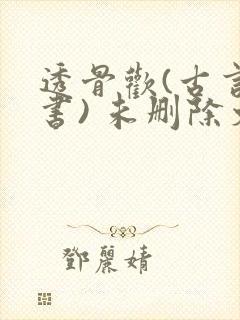 透骨歡(古言
書)未刪除
鄧麗婧